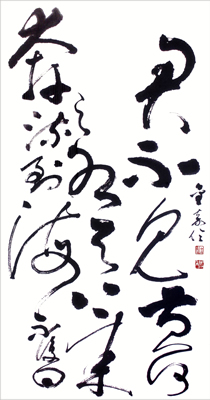 君不見黃河
之水天上來
奔流到海不復回